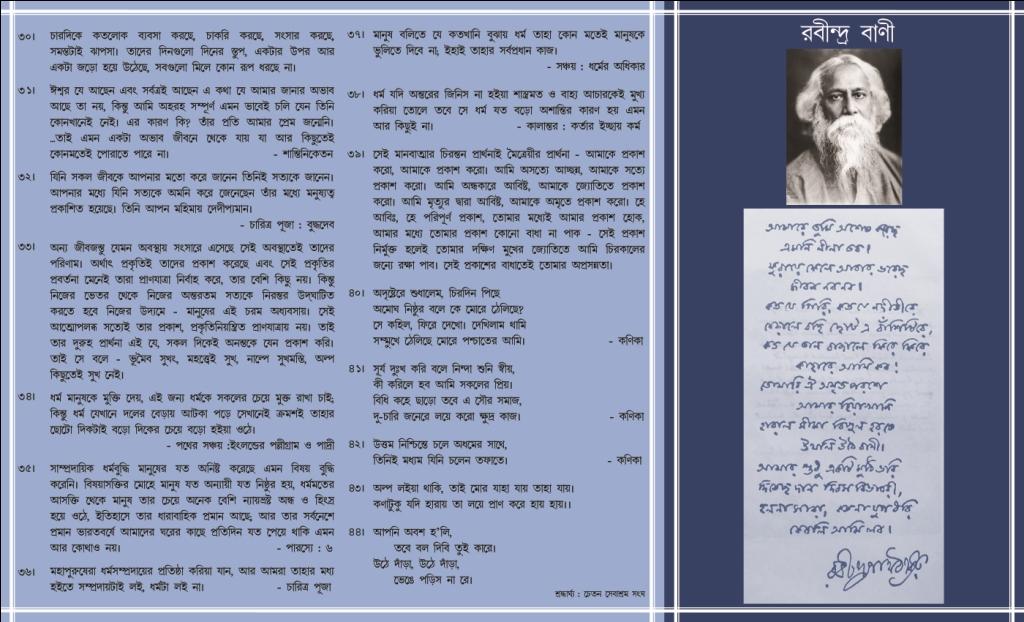 ৩০। চারদিকে কতলোক ব্যবসা করছে, চাকরি করছে, সংসার করছে,
সমস্তটাই ঝাপসা। তাদের দিনগুলো দিনের স্তুপ, একটার উপর আর
একটা জড়ো হয়ে উঠেছে, সবগুলো মিলে কোন রূপ ধরছে না।
৩১। ঈশ্বর যে আছেন এবং সর্বত্রই আছেন এ কথা যে আমার জানার অভাব
আছে তা নয়, কিন্তু আমি অহরহ সম্পূর্ণ এমন ভাবেই চলি যেন তিনি
কোনখানেই নেই। এর কারণ কি? তাঁর প্রতি আমার প্রেম জন্মেনি।
...তাই এমন একটা অভাব জীবনে থেকে যায় যা আর কিছুতেই
কোনমতেই পোরাতে পারে না। - শান্তিনিকেতন
৩২। যিনি সকল জীবকে আপনার মতো করে জানেন তিনিই সত্যকে জানেন।
আপনার মধ্যে যিনি সত্যকে অমনি করে জেনেছেন তাঁর মধ্যে মনুষ্যত্ব
প্রকাশিত হয়েছে। তিনি আপন মহিমায় দেদীপ্যমান।
- চারিত্র পূজা : বুদ্ধদেব
৩৩। অন্য জীবজন্তু যেমন অবস্থায় সংসারে এসেছে সেই অবস্থাতেই তাদের
পরিণাম। অর্থাৎ প্রকৃতিই তাদের প্রকাশ করেছে এবং সেই প্রকৃতির
প্রবর্তনা মেনেই তারা প্রাণযাত্রা নির্বাহ করে, তার বেশি কিছু নয়। কিন্তু
নিজের ভেতর থেকে নিজের অন্তরতম সত্যকে নিরন্তর উদ্‌ঘাটিত
করতে হবে নিজের উদ্যমে - মানুষের এই চরম অধ্যবসায়। সেই
আত্মোপলব্ধ সত্যেই তার প্রকাশ, প্রকৃতিনিয়ন্ত্রিত প্রাণযাত্রায় নয়। তাই
তার দুরুহ প্রার্থনা এই যে, সকল দিকেই অনন্তকে যেন প্রকাশ করি।
তাই সে বলে - ভূমৈব সুখং, মহত্ত্বেই সুখ, নাল্পে সুখমস্তি, অল্প
কিছুতেই সুখ নেই।
৩৪। ধর্ম মানুষকে মুক্তি দেয়, এই জন্য ধর্মকে সকলের চেয়ে মুক্ত রাখা চাই;
কিন্তু ধর্ম যেখানে দলের বেড়ায় আটকা পড়ে সেখানেই ক্রমশই তাহার
ছোটো দিকটাই বড়ো দিকের চেয়ে বড়ো হইয়া ওঠে।
- পথের সঞ্চয় :ইংলন্ডের পল্লীগ্রাম ও পাদ্রী
৩৫। সাম্প্রদায়িক ধর্মবুদ্ধি মানুষের যত অনিষ্ট করেছে এমন বিষয় বুদ্ধি
করেনি। বিষয়াসক্তির মোহে মানুষ যত অন্যায়ী যত নিষ্ঠুর হয়, ধর্মমতের
আসক্তি থেকে মানুষ তার চেয়ে অনেক বেশি ন্যায়ভ্রষ্ট অন্ধ ও হিংস্র
হয়ে ওঠে, ইতিহাসে তার ধারাবাহিক প্রমান আছে; আর তার সর্বনেশে
প্রমান ভারতবর্ষে আমাদের ঘরের কাছে প্রতিদিন যত পেয়ে থাকি এমন
আর কোথাও নয়। - পারস্যে : ৬
৩৬। মহাপুরুষেরা ধর্মসম্প্রদায়ের প্রতিষ্ঠা করিয়া যান, আর আমরা তাহার মধ্য
হইতে সম্প্রদায়টাই লই, ধর্মটা লই না। - চারিত্র পূজা
৩৭। মানুষ বলিতে যে কতখানি বুঝায় ধর্ম তাহা কোন মতেই মানুষকে
ভুলিতে দিবে না; ইহাই তাহার সর্বপ্রধান কাজ।
- সঞ্চয় : ধর্মের অধিকার
৩৮। ধর্ম যদি অন্তরের জিনিস না হইয়া শাস্ত্রমত ও বাহ্য আচারকেই মুখ্য
করিয়া তোলে তবে সে ধর্ম যত বড়ো অশান্তির কারণ হয় এমন
আর কিছুই না। - কালান্তর : কর্তার ইচ্ছায় কর্ম
৩৯। সেই মানবাত্মার চিরন্তন প্রার্থনাই মৈত্রেয়ীর প্রার্থনা - আমাকে প্রকাশ
করো, আমাকে প্রকাশ করো। আমি অসত্যে আচ্ছন্ন, আমাকে সত্যে
প্রকাশ করো। আমি অন্ধকারে আবিষ্ট, আমাকে জ্যোতিতে প্রকাশ
করো। আমি মৃত্যুর দ্বারা আবিষ্ট, আমাকে অমৃতে প্রকাশ করো। হে
আবিঃ, হে পরিপূর্ণ প্রকাশ, তোমার মধ্যেই আমার প্রকাশ হোক,
আমার মধ্যে তোমার প্রকাশ কোনো বাধা না পাক - সেই প্রকাশ
নির্মুক্ত হলেই তোমার দক্ষিণ মুখের জ্যোতিতে আমি চিরকালের
জন্যে রক্ষা পাব। সেই প্রকাশের বাধাতেই তোমার অপ্রসন্নতা।
৪০। অদৃষ্টেরে শুধালেম, চিরদিন পিছে
অমোঘ নিষ্ঠুর বলে কে মোরে ঠেলিছে?
সে কহিল, ফিরে দেখো। দেখিলাম থামি
সম্মুখে ঠেলিছে মোরে পশ্চাতের আমি। - কণিকা
৪১। সূর্য দুঃখ করি বলে নিন্দা শুনি স্বীয়,
কী করিলে হব আমি সকলের প্রিয়।
বিধি কহে ছাড়ো তবে এ সৌর সমাজ,
দু-চারি জনেরে লয়ে করো ক্ষুদ্র কাজ। - কণিকা
৪২। উত্তম নিশ্চিন্তে চলে অধমের সাথে,
তিনিই মধ্যম যিনি চলেন তফাতে। - কণিকা
৪৩। অল্প লইয়া থাকি, তাই মোর যাহা যায় তাহা যায়।
কণাটুকু যদি হারায় তা লয়ে প্রাণ করে হায় হায়।।
৪৪। আপনি অবশ হ'লি,
তবে বল দিবি তুই কারে।
উঠে দাঁড়া, উঠে দাঁড়া,
ভেঙে পড়িস না রে।
শ্রদ্ধার্ঘ্য : চেতন সেবাশ্রম সংঘ
রবীন্দ্র বাণী
আমারে তুমি অশেষ করেছ
এমনি লীলা তব।
ফুরায়ে ফেলে আবার ভরেছ
জীবন নব নব।